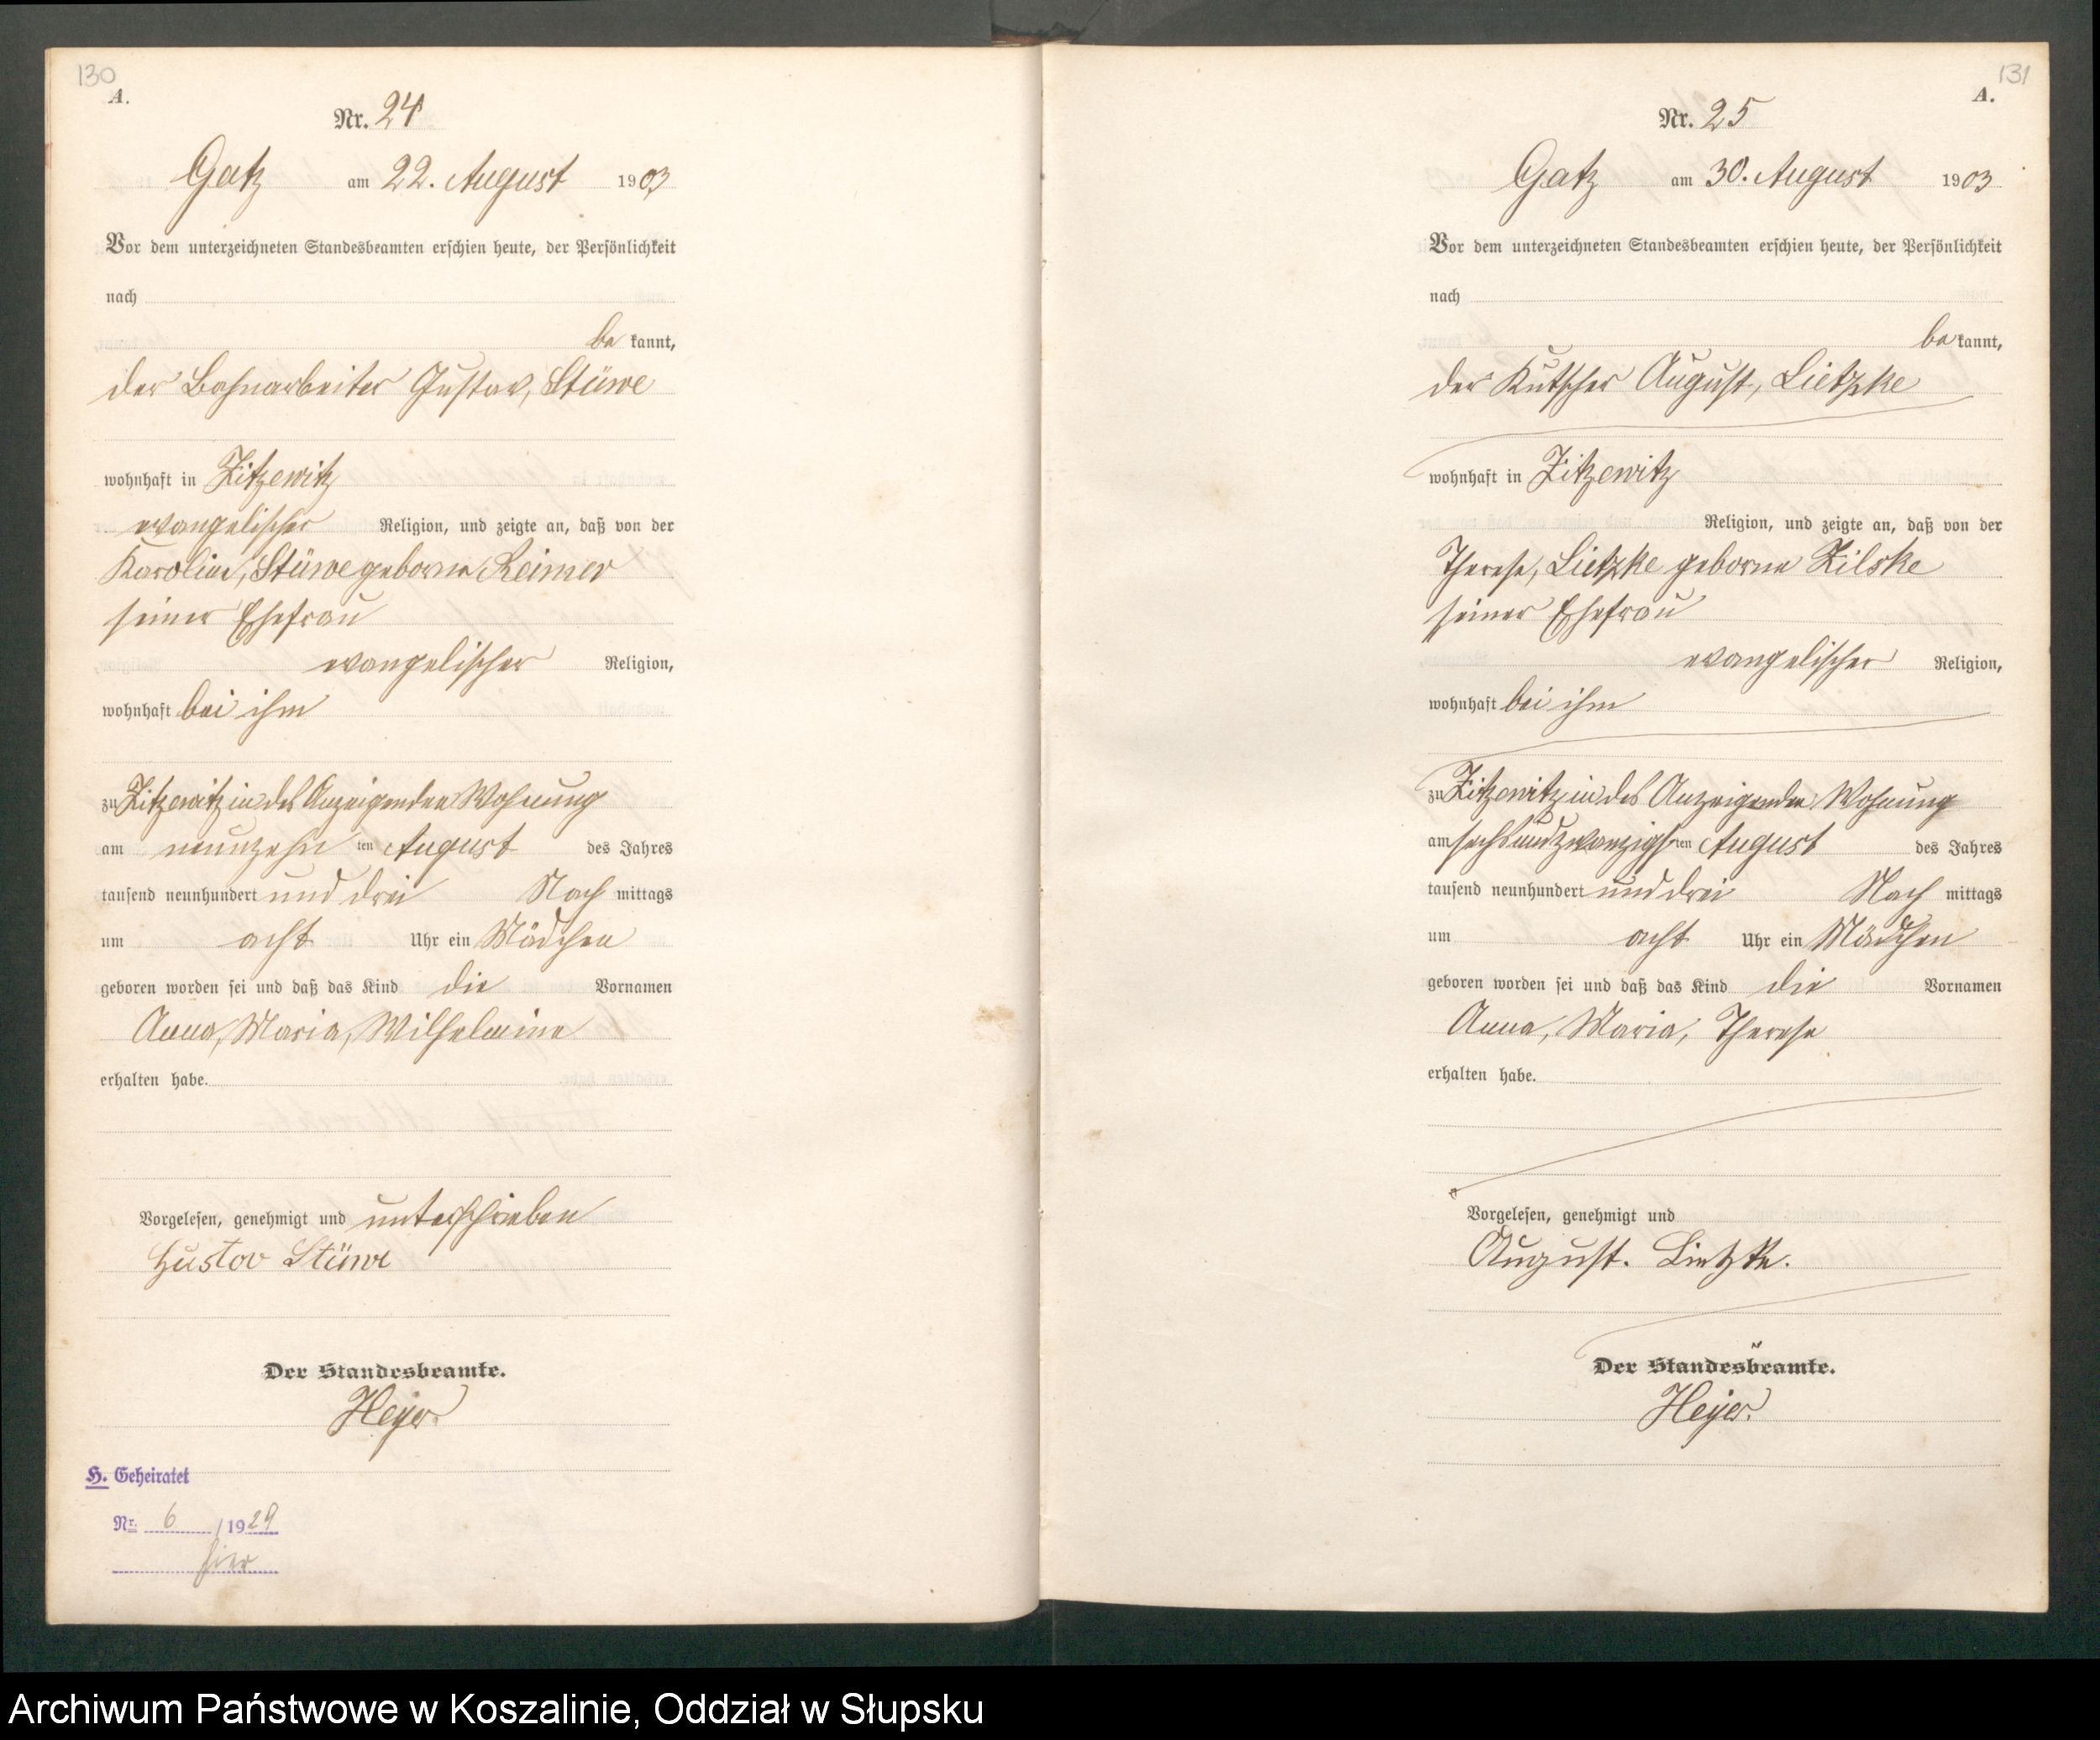 130
A.
Nr. 24
Gatz am 22. August 1903
Vor dem unterzeichneten Standesbeamten erschien heute, der Persönlichkeit
nach
be kannt,
der Bahnarbeiter Gustav, Stüwe
wohnhaft in Zitzewitz
evangelischer Religion, und zeigte an, daß von der
Karoline, Stüwe geborne Reimer
seiner Ehefrau
evangelischer Religion,
wohnhaft bei ihm
zu Zitzewitz in des Anzeigenden Wohnung
am neunzehn ten August des Jahres
tausend neunhundert und drei Nach mittags
um acht Uhr ein Mädchen
geboren worden sei und daß das Kind die Vornamen
Anna, Maria, Wilhelmine
erhalten habe.
Vorgelesen, genehmigt und unterschrieben
Gustav Stüwe
Der Standesbeamte.
Heyer.
H. Geheiratet
Nr. 6 / 1929
hier
131
A.
Nr. 25
Gatz am 30. August 1903
Vor dem unterzeichneten Standesbeamten erschien heute, der Persönlichkeit
nach
be kannt,
der Kutscher August, Lietzke
wohnhaft in Zitzewitz
Religion, und zeigte an, daß von der
Therese, Lietzke geborne Zilske
seiner Ehefrau
evangelischer Religion,
wohnhaft bei ihm
zu Zitzewitz in des Anzeigenden Wohnung
am sechsundzwanzigsten August des Jahres
tausend neunhundert und drei Nach mittags
um acht Uhr ein Mädchen
geboren worden sei und daß das Kind die Vornamen
Anna, Maria, Therese
erhalten habe.
Vorgelesen, genehmigt und
August. Lietzke.
Der Standesbeamte.
Heyer.
Archiwum Państwowe w Koszalinie, Oddział w Słupsku